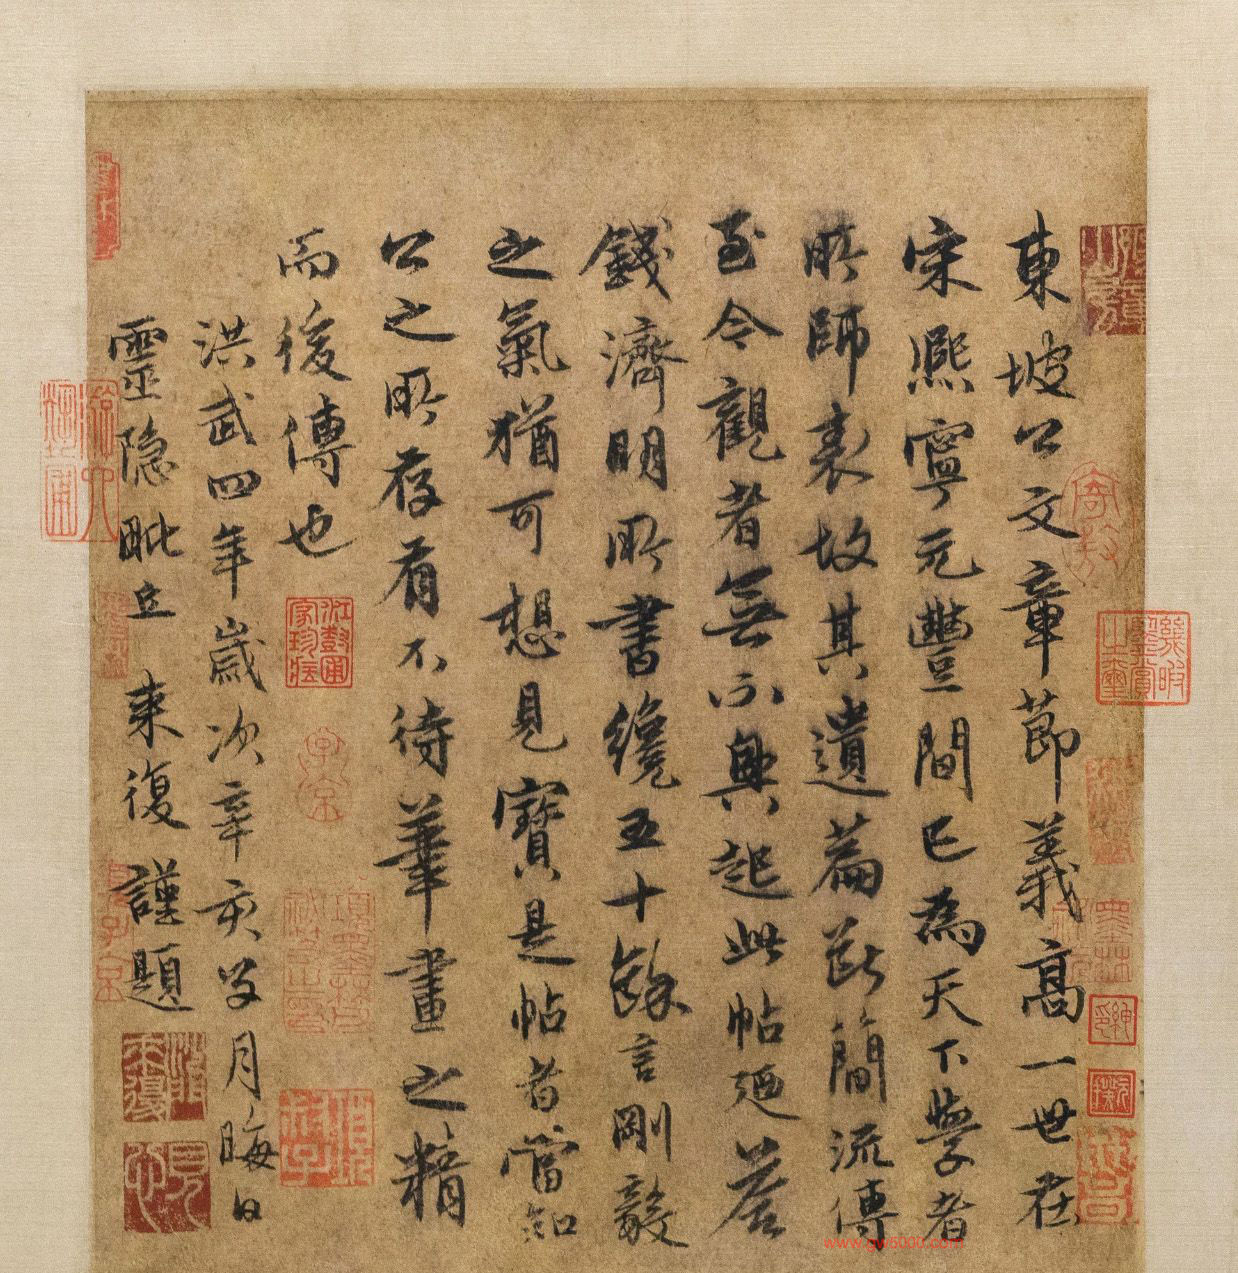 東坡公文章節義高一世在
宋熙寧元豐間已為天下學者
所師表故其遺篇斷簡流傳
至今觀者無不興起此帖廼答
錢濟明所書纔五十餘言剛毅
之氣猶可想見寶是帖者當知
公之所存有不待筆畫之精
而後傳也
洪武四年歲次辛亥月晦日
靈隱毗丘 來復謹題
幾暇鑒賞之璽
子京
項子京
來復
www.gw5000.com